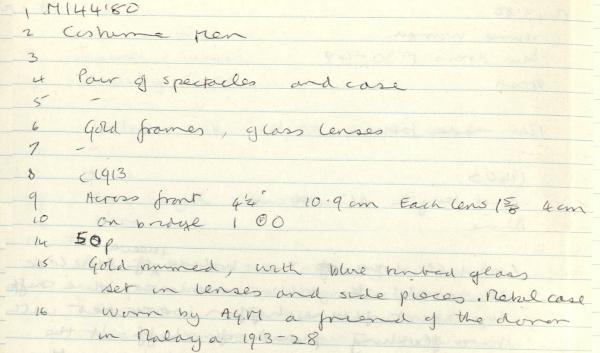 1 M144'80
2 Costume Men
3
4 Pair of spectacles and case
5 -
6 Gold frames, glass lenses
7 -
8 c1913
9 Across front 4¼" 10.9cm Each Lens 1⅝ 4cm
10 on bridge 1 0
14 50p
15 Gold rimmed, with blue tinted glass
set in lenses and side pieces. Metal case
16 Worn by AGM a friend of the donor
in Malaya 1913-28